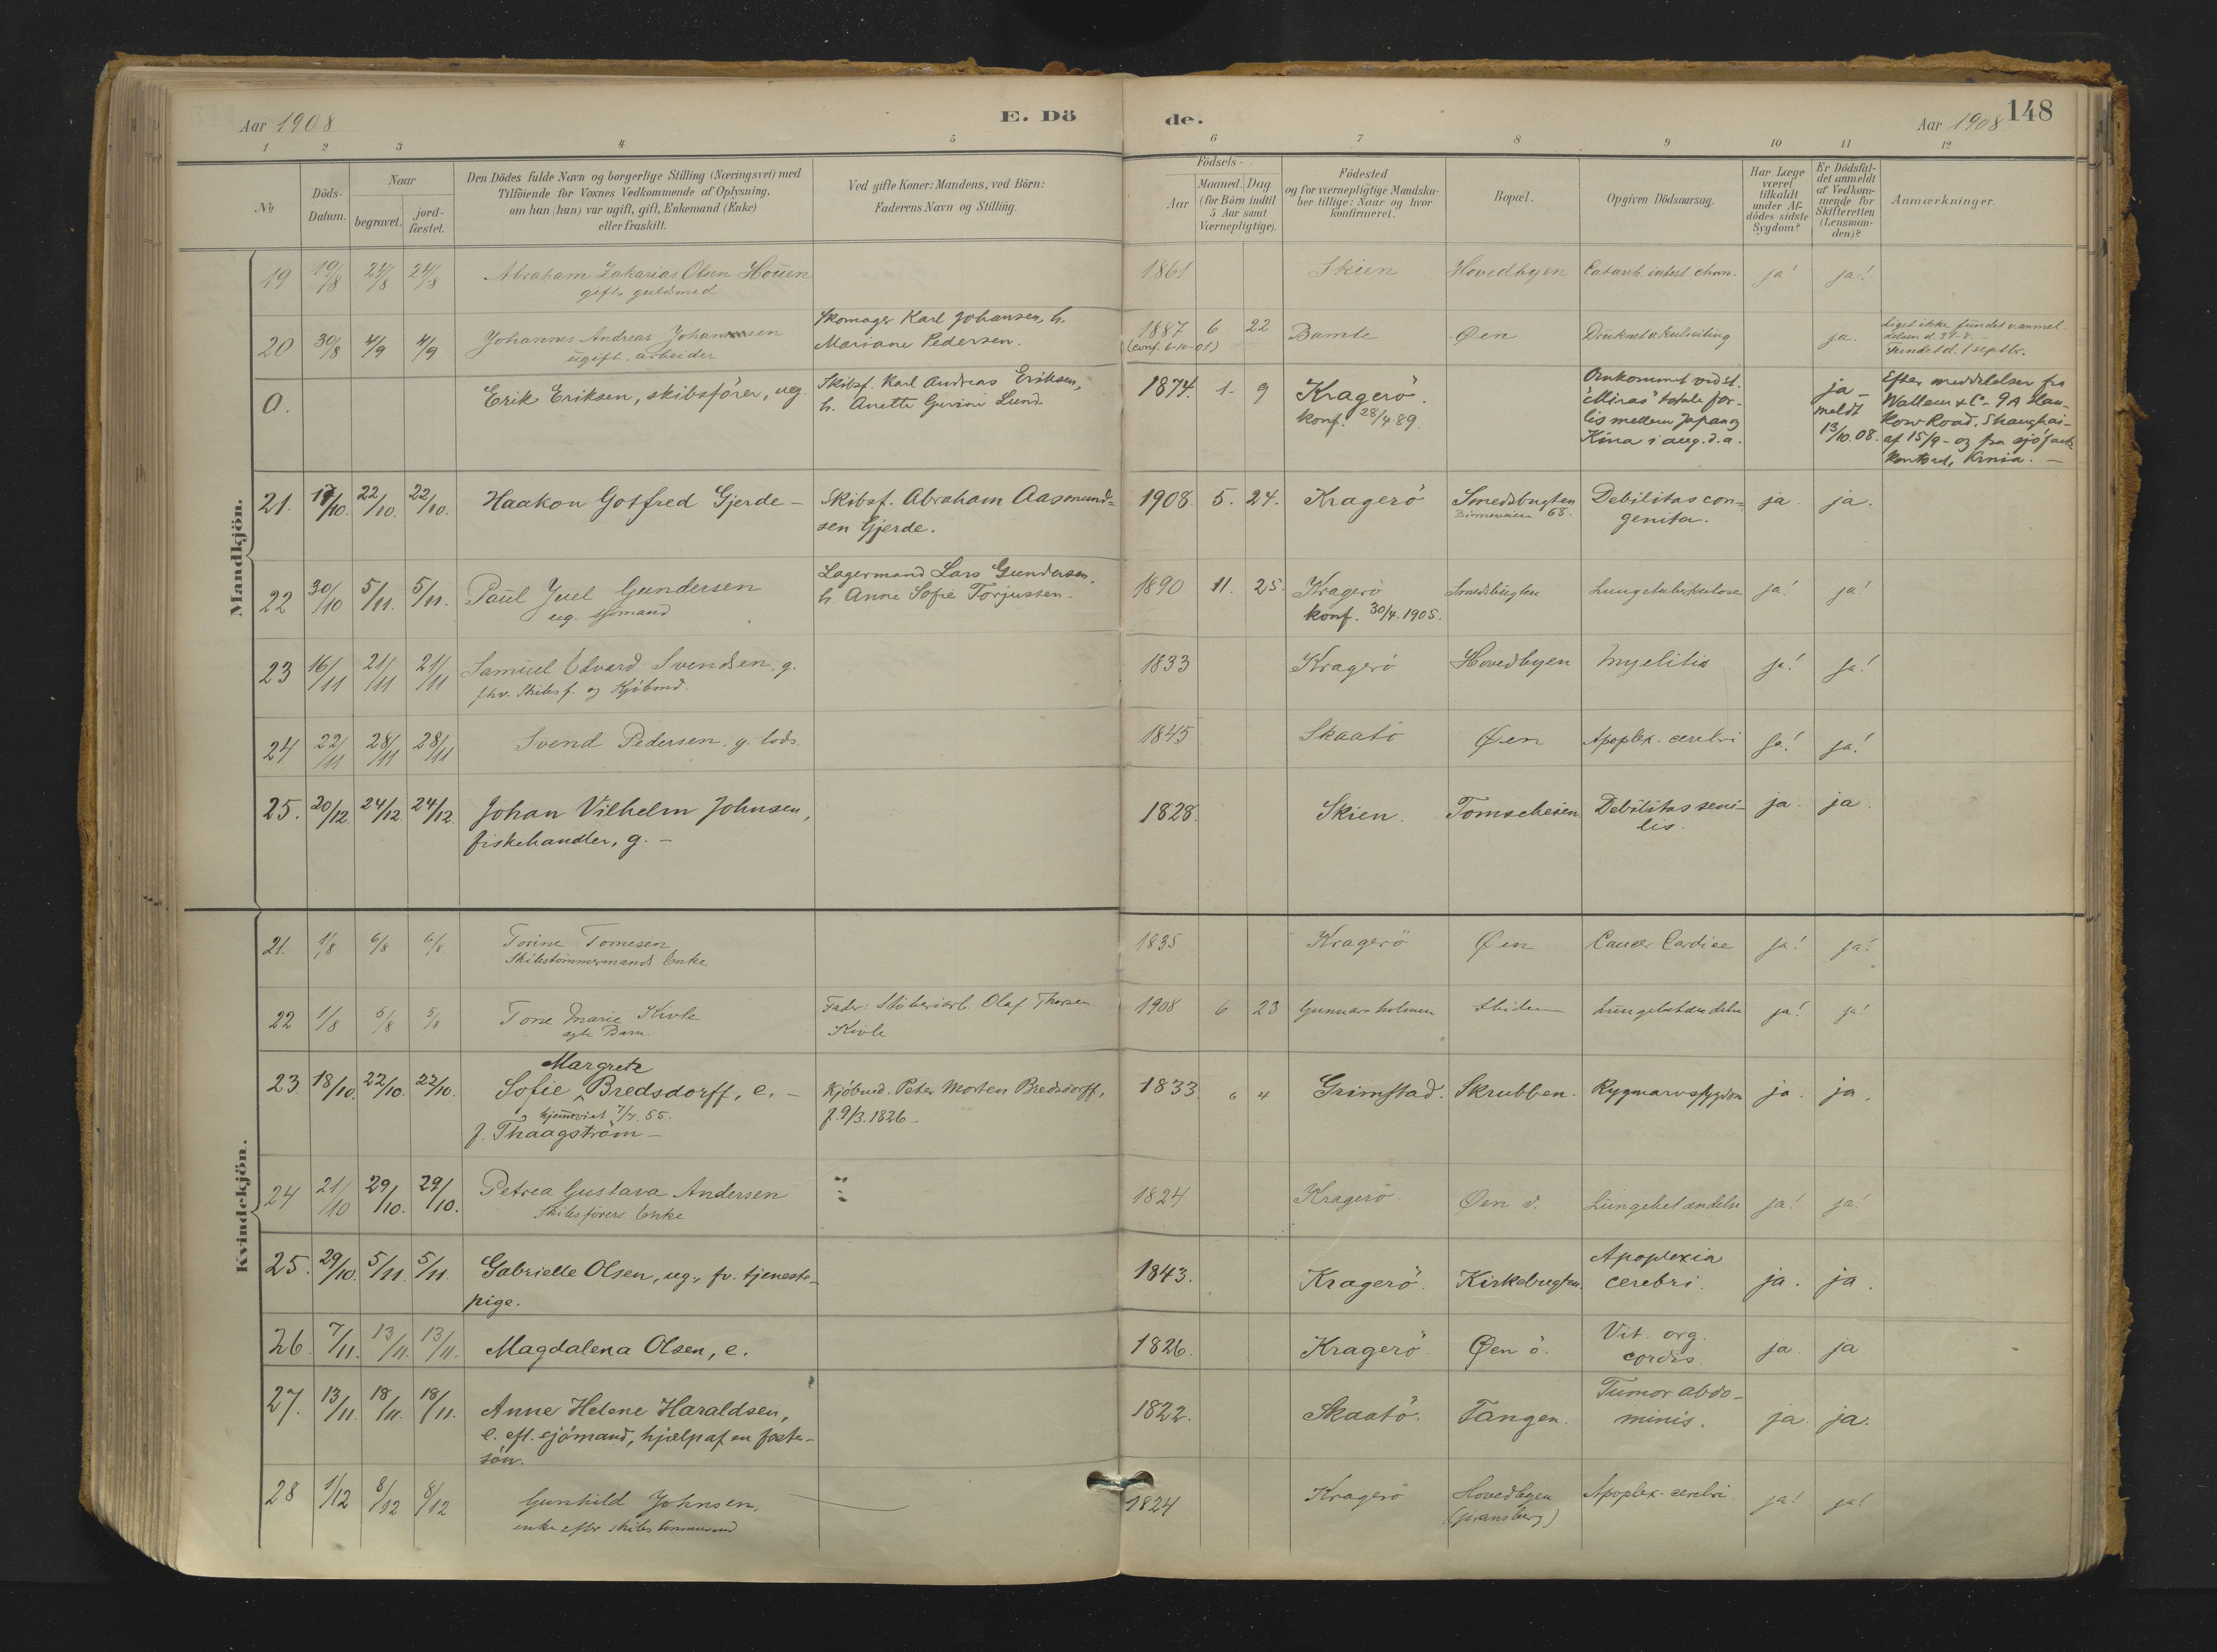 Aar 1908
E. Dö
de.
Aar 1908
148
1 2 3 4 5 6 7 8 9 10 11 12
No
Döds-
Datum.
Naar
begravet.
jord-
fæstet.
Den Dödes fulde Navn og borgerlige Stilling (Næringsvei) med
Tilföiende for Voxnes Vedkommende af Oplysning,
om han (hun) var ugift, gift, Enkemand (Enke)
eller fraskilt.
Ved gifte Koner: Mandens, ved Börn:
Faderens Navn og Stilling.
Födsels-
Aar
Maaned. Dag
(for Börn indtil
5 Aar samt
Værnepligtige).
Födested
og for værnepligtige Mandska-
ber tillige: Naar og hvor
konfirmeret.
Bopæl.
Opgiven Dödsaarsag.
Har Læge
været
tilkaldt
under Af-
dödes sidste
Sygdom?
Er Dödsfal-
det anmeldt
af Vedkom-
mende for
Skifteretten
(Lensman-
den)?
Anmærkninger.
Mandkjön.
19 19/8 24/8 24/8 Abraham Zakarias Olsen Houen 1861 Skien Hovedbyen Catarrh. intest. chron. ja! ja!
gift guldsmed
20 30/8 4/9 4/9 Johannes Andreas Johansen
ugift. arbeider
Skomager Karl Johansen, h.
Mariane Pedersen.
1887 6 22 Bamle Øen ja.
(conf. 6-10-01)
Liget ikke fundet v. anmel-
delsen d. 31-8.
Fundet d. 1 septbr.
0. Erik Eriksen, skibsförer, ug.
Skibsf. Karl Andreas Eriksen,
h. Anette Lund
1874. 1. 9 Kragerö.
konf. 28/4 89.
Omkommet ved st.
"Miras" totale for-
lis mellem Japan og
Kina i aug. d. a.
ja -
meldt
13/10. 08.
Efter meddelelser fra
Wallem & Co. 9A Han-
kow Road, Shanghai -
af 15/9 - og fra sjöfarts-
kontoret, Krnia. -
21. 17/10. 22/10. 22/10. Haakon Gotfred Gjerde -
Skibsf. Abraham Aasmund-
sen Gjerde.
1908. 5. 24. Kragerö Smedsbugten
68.
Debilitas con-
genita.
ja. ja.
22 30/10 5/11. 5/11. Paul Juel Gundersen
ug. sjömand
Lagermand Lars Gundersen,
h. Anne Sofie Torjussen.
1890 11. 25. Kragerö
konf. 30/4. 1905.
Smedsbugten Lungetuberkulose ja! ja!
23 16/11 21/11 21/11 Samuel Edvard Svendsen, g.
fhv. Skibsf. og Kjöbmd.
1833 Kragerö Hovedbyen Myelitis ja! ja!
24 22/11 28/11 28/11 Svend Pedersen. g. lods. 1845 Skaatö Øen Apoplex. cerebri ja! ja!
25. 20/12. 24/12. 24/12. Johan Vilhelm Johnsen,
fiskehandler, g. -
1828. Skien. Tomseheien. Debilitas seni-
lis.
ja. ja.
Kvindekjön.
21. 1/8 6/8 6/8 Torine Tomesen
Skibstömmermands Enke
1835 Kragerö Øen Cancer Cardiae ja! ja!
22 1/8 5/8 5/8 Tone Marie Kivle
ægte Barn.
Fader: Olaf Thorsen
Kivle
1908 6 23 Gunnarsholmen Lungebetændelse ja! ja!
23 18/10. 22/10. 22/10. Margrete
Sofie Bredsdorff, e. -
hjemmeviet 7/7. 55.
f. Thaagström -
Kjöbmd. Peter Morten Bredsdorff,
f. 9/3. 1826 -
1833. 6 4 Grimstad. Skrubben. Rygmarvssygdom ja. ja.
24 21/10 29/10. 29/10. Petrea Gustava Andersen
Skibsförers Enke
1824 Kragerö Øen v. Lungebetændelse ja! ja!
25. 29/10. 5/11. 5/11. Gabrielle Olsen, ug., fv. tjeneste-
pige.
1843. Kragerö. Kirkebugten. Apoplexia
cerebri.
ja. ja.
26. 7/11. 13/11. 13/11. Magdalena Olsen, e. 1826. Kragerö. Øen ö. Vit. org.
cordis.
ja. ja
27. 13/11. 18/11. 18/11. Anne Helene Haraldsen,
e. eft. sjömand, hjælp af en foster-
sön.
1822. Skaatö. Tangen. Tumor abdo-
minis.
ja. ja.
28 1/12 8/12 8/12 Gunhild Johnsen,
enke efter skibstömmermd
1824 Kragerö Hovedbyen
Apoplex. cerebri ja! ja!